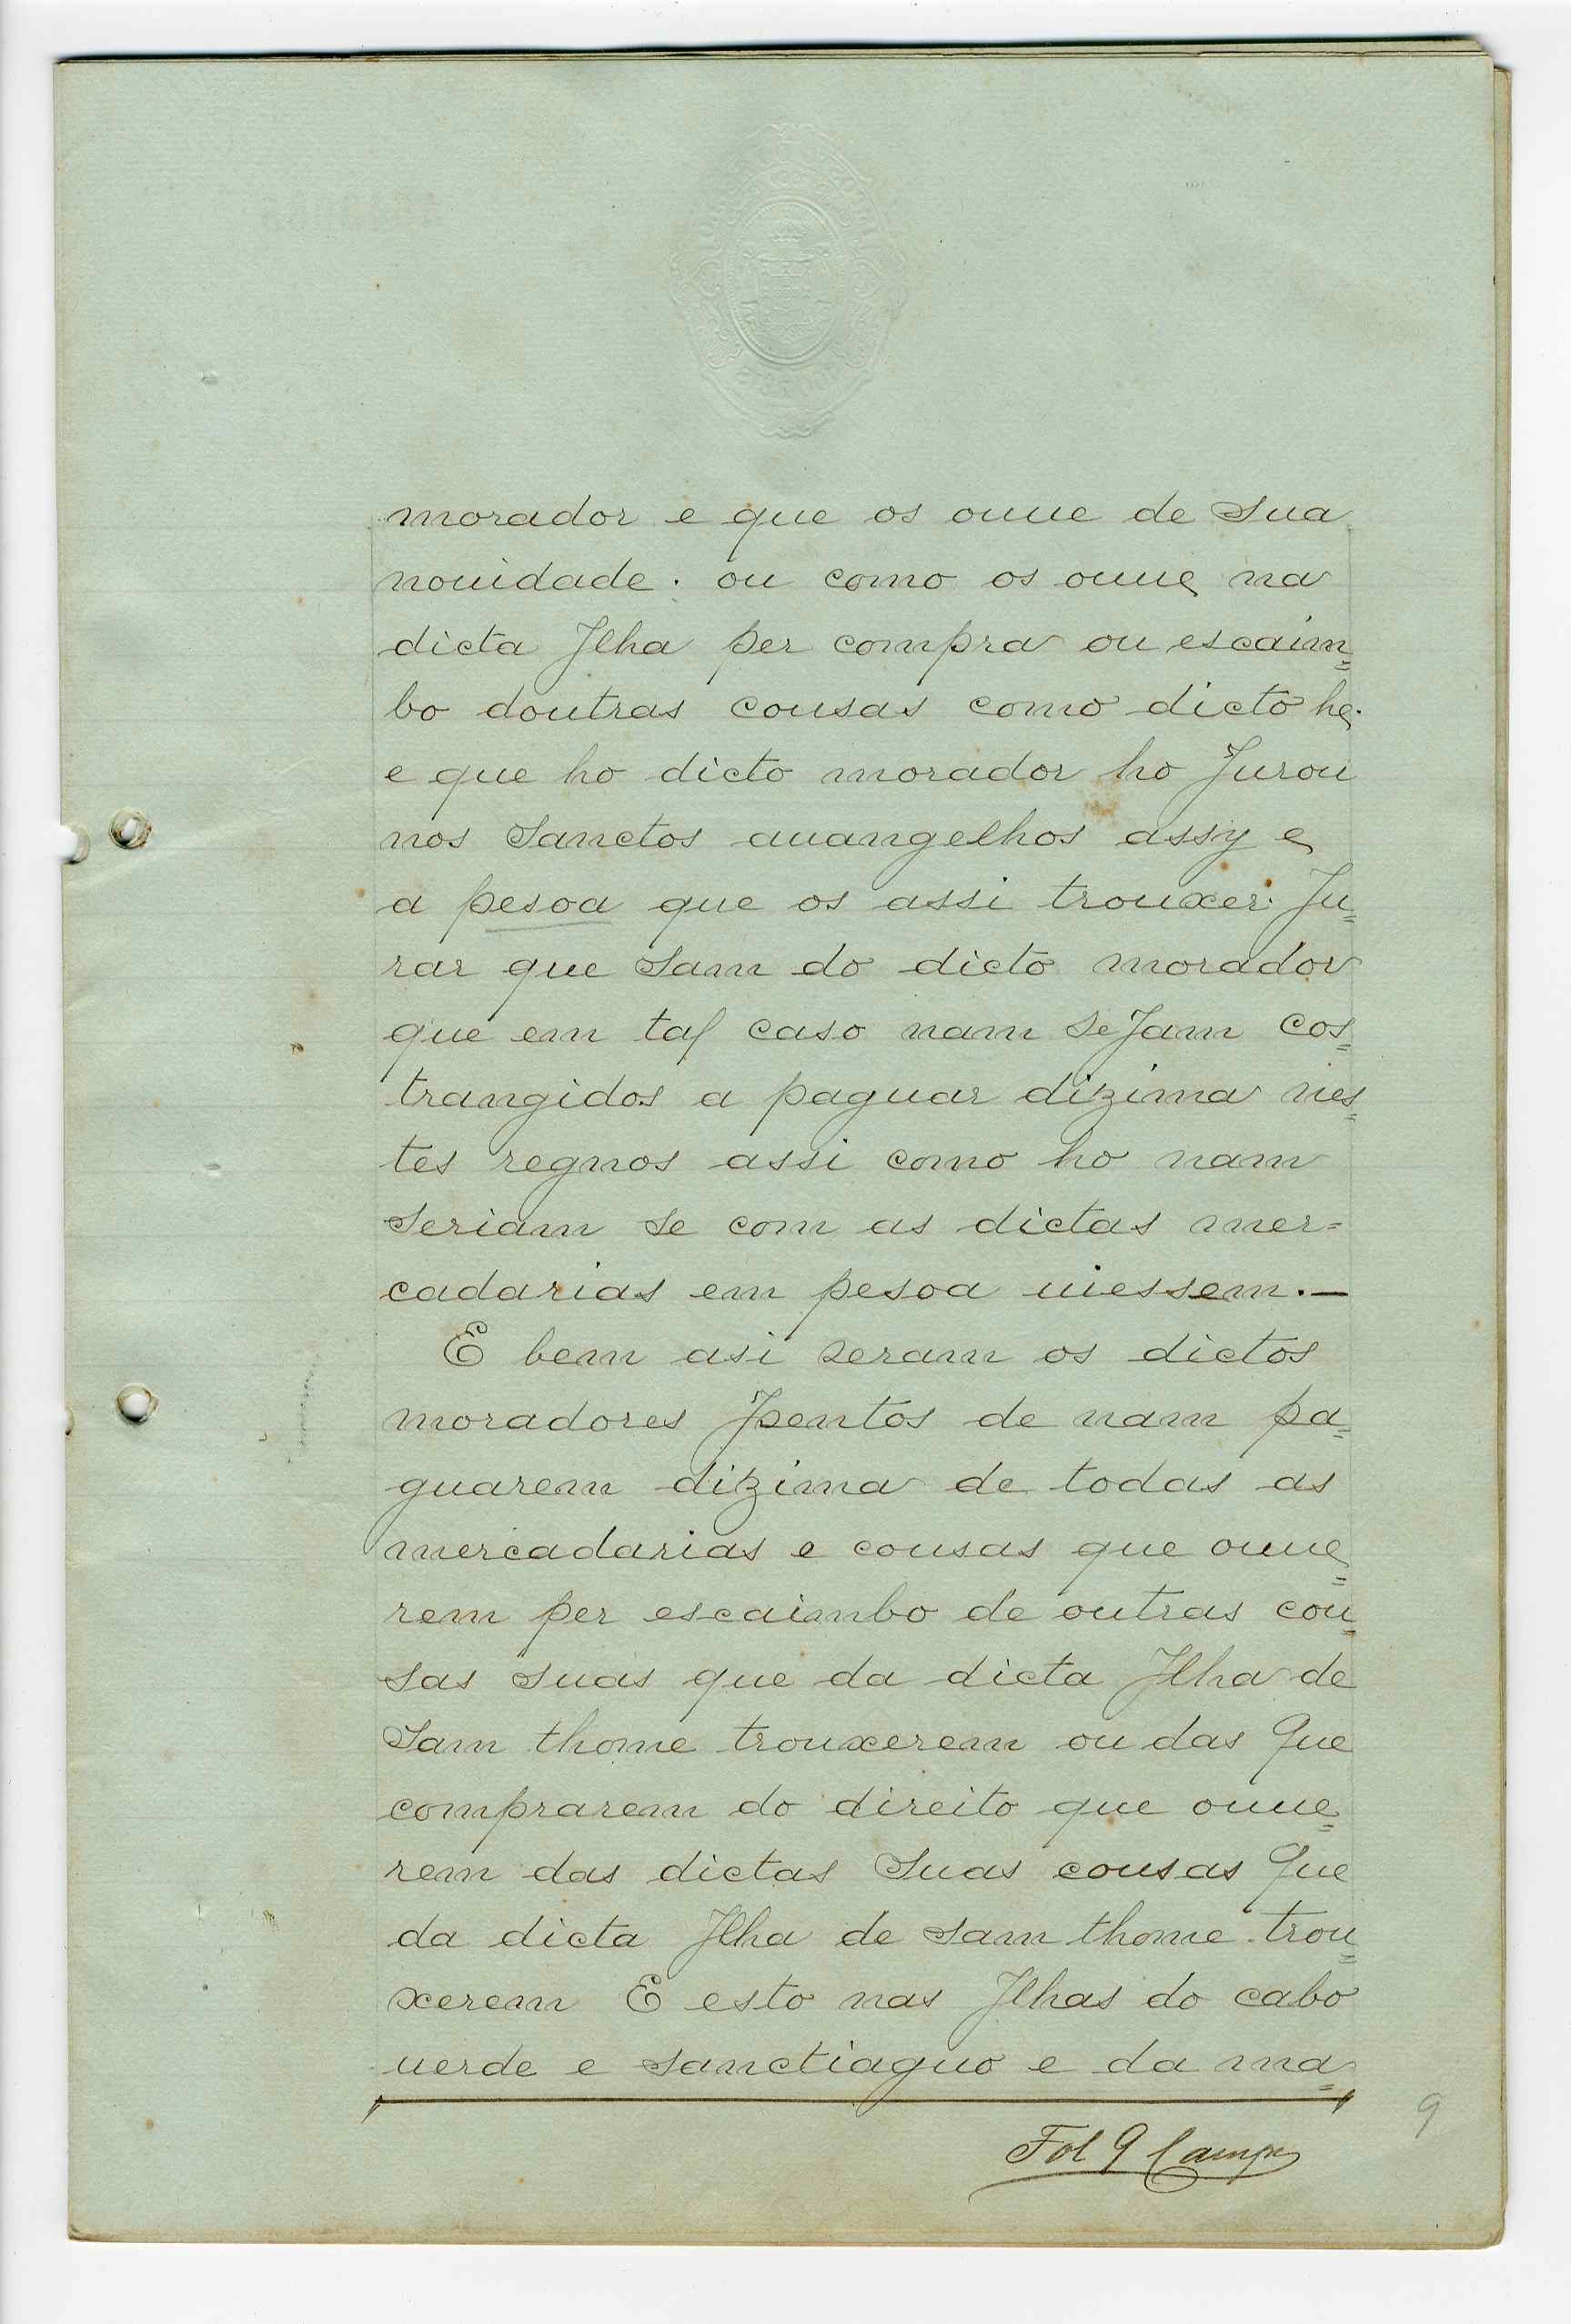 morador e que os ouue de sua
nouidade. ou como os ouue na
dicta Jlha per compra ou escaim=
bo doutras cousas como dicto he.
e que ho dicto morador ho Jurou
nos sanctos auangelhos assy e
a pesoa que os assi trouxer. Ju=
rar que sam do dicto morador
que em tal caso nam seJam cos=
trangidos a paguar dizima nes=
tes regnos assi como ho nam
seriam se com as dictas mer=
cadarias em pesoa uiessem.—
E bem asi seram os dictos
moradores Jsentos de nam pa=
guarem dizima de todas as
mercadarias e cousas que ouue=
rem per escaimbo de outras cou=
sas suas que da dicta Jlha de
Sam thome trouxerem ou das Que
comprarem do direito que ouue=
rem das dictas suas cousas Que
da dicta Jlha de sam thome trou=
xerem E esto nas Jlhas do cabo
uerde e sanctiaguo e da ma=
Fol 9
9